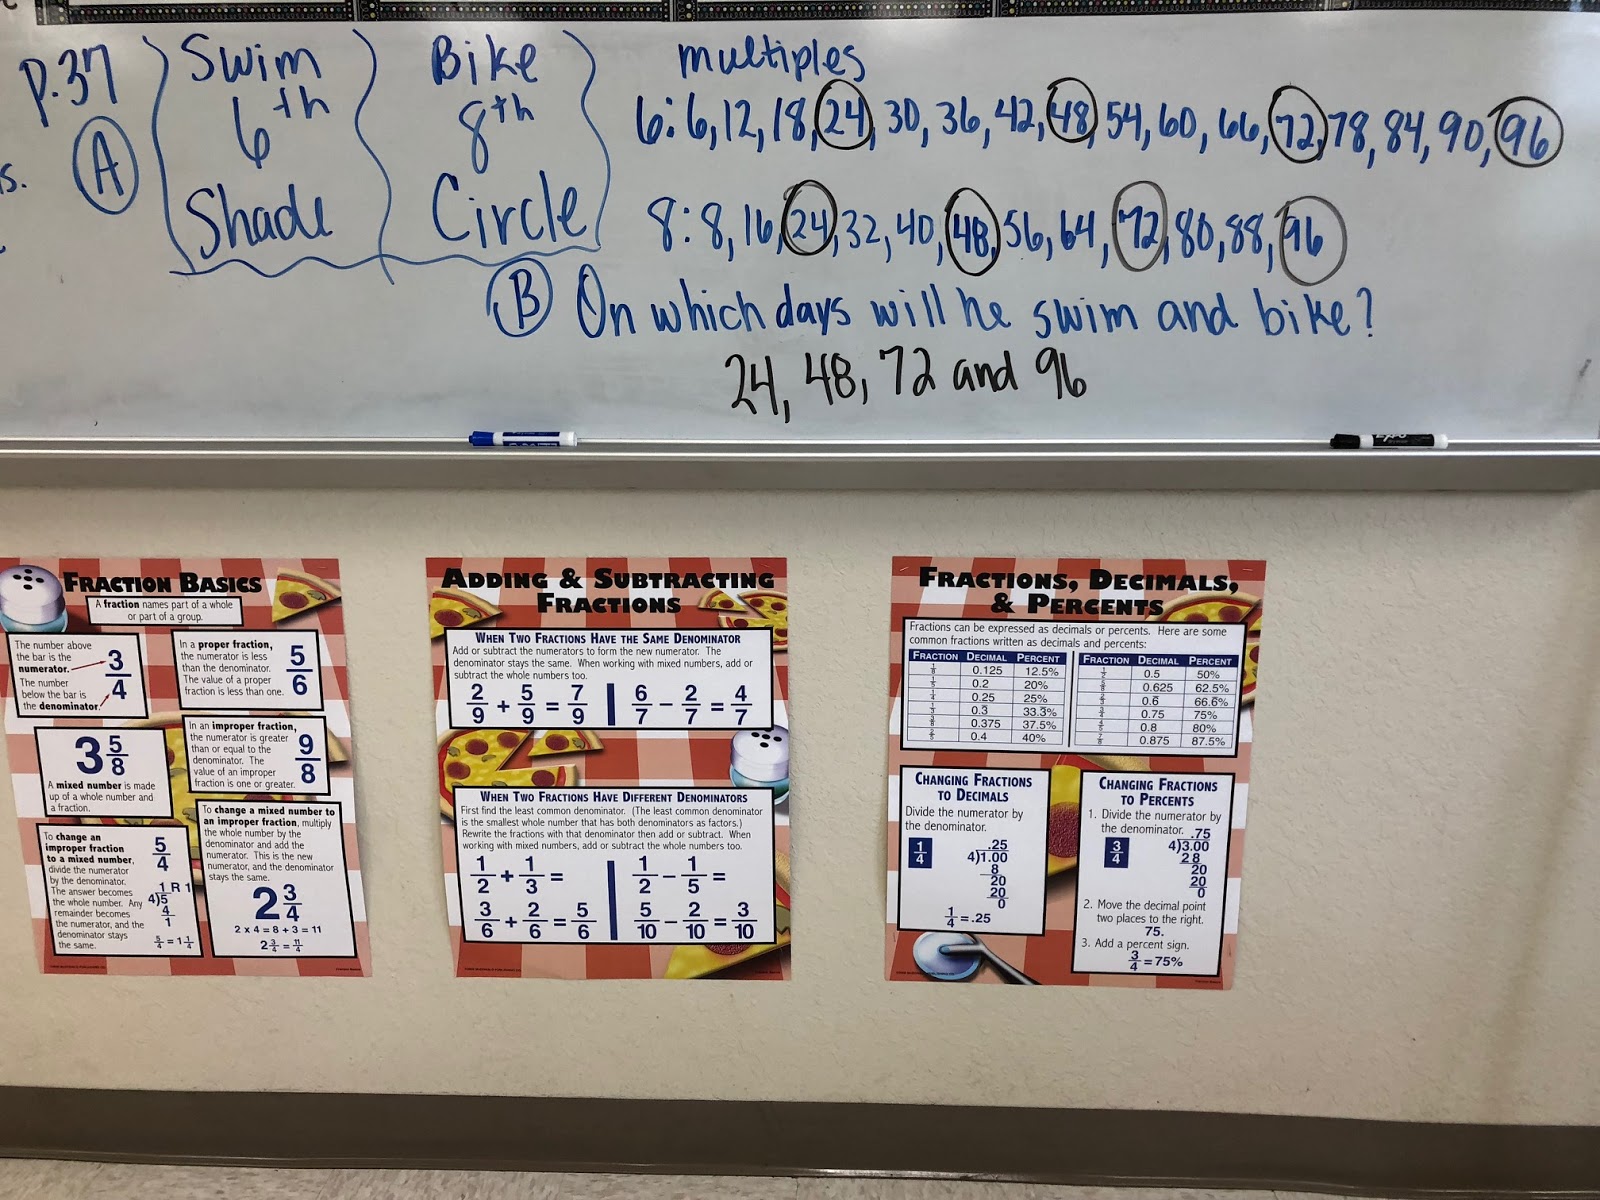 p.37
s.
Swim
6th
Shade
Bike
8th
Circle
A
multiples
6: 6, 12, 18, 24, 30, 36, 42, 48, 54, 60, 66, 72, 78, 84, 90, 96
8: 8, 16, 24, 32, 40, 48, 56, 64, 72, 80, 88, 96
B On which days will he swim and bike?
24, 48, 72 and 96
EXPO
FRACTION BASICS
A fraction names part of a whole
or part of a group.
The number above
the bar is the
numerator.
The number
below the bar is
the denominator.
3/4
In a proper fraction,
the numerator is less
than the denominator.
The value of a proper
fraction is less than one.
5/6
3 5/8
A mixed number is made
up of a whole number and
a fraction.
In an improper fraction,
the numerator is greater
than or equal to the
denominator. The
value of an improper
fraction is one or greater.
9/8
To change an
improper fraction
to a mixed number,
divide the numerator
by the denominator.
The answer becomes
the whole number. Any
remainder becomes
the numerator, and the
denominator stays
the same.
5/4
1 R 1
4)5
4
1
5/4 = 1 1/4
To change a mixed number to
an improper fraction, multiply
the whole number by the
denominator and add the
numerator. This is the new
numerator, and the denominator
stays the same.
2 3/4
2 x 4 = 8 + 3 = 11
2 3/4 = 11/4
ADDING & SUBTRACTING
FRACTIONS
WHEN TWO FRACTIONS HAVE THE SAME DENOMINATOR
Add or subtract the numerators to form the new numerator. The
denominator stays the same. When working with mixed numbers, add or
subtract the whole numbers too.
2/9 + 5/9 = 7/9 | 6/7 − 2/7 = 4/7
WHEN TWO FRACTIONS HAVE DIFFERENT DENOMINATORS
First find the least common denominator. (The least common denominator
is the smallest whole number that has both denominators as factors.)
Rewrite the fractions with that denominator then add or subtract. When
working with mixed numbers, add or subtract the whole numbers too.
1/2 + 1/3 = | 1/2 − 1/5 =
3/6 + 2/6 = 5/6 | 5/10 − 2/10 = 3/10
FRACTIONS, DECIMALS,
& PERCENTS
Fractions can be expressed as decimals or percents. Here are some
common fractions written as decimals and percents:
FRACTION DECIMAL PERCENT
1/8 0.125 12.5%
1/5 0.2 20%
1/4 0.25 25%
1/3 0.3̅ 33.3̅%
3/8 0.375 37.5%
2/5 0.4 40%
FRACTION DECIMAL PERCENT
1/2 0.5 50%
5/8 0.625 62.5%
2/3 0.6̅ 66.6̅%
3/4 0.75 75%
4/5 0.8 80%
7/8 0.875 87.5%
CHANGING FRACTIONS
TO DECIMALS
Divide the numerator by
the denominator.
1/4
.25
4)1.00
8
20
20
0
1/4 = .25
CHANGING FRACTIONS
TO PERCENTS
1. Divide the numerator by
the denominator.
3/4
.75
4)3.00
28
20
20
0
2. Move the decimal point
two places to the right.
75.
3. Add a percent sign.
3/4 = 75%